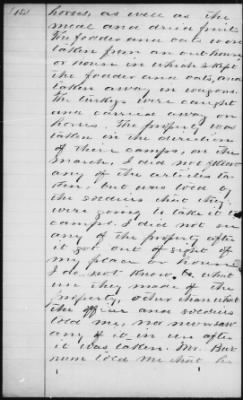 horses, as well as the
meal and dried fruit.
The fodder and oats were
taken from an out house
or house in which I kept
the fodder and oats, and
taken away in wagons.
The turkeys were caught
and carried away on
horses. The property was
taken in the direction
of their camps, on the
march, I did not follow
any of the articles ta-
ken, but was told by
the soldiers that they
were going to take it to
camps. I did not see
any of the property after
it got out of sight of
my place or house.
I do not know to what
use they made of the
property, other than what
the officer and soldiers
told me, nor
any of it in use after
it was taken. Mr. Bur-
num told me that he